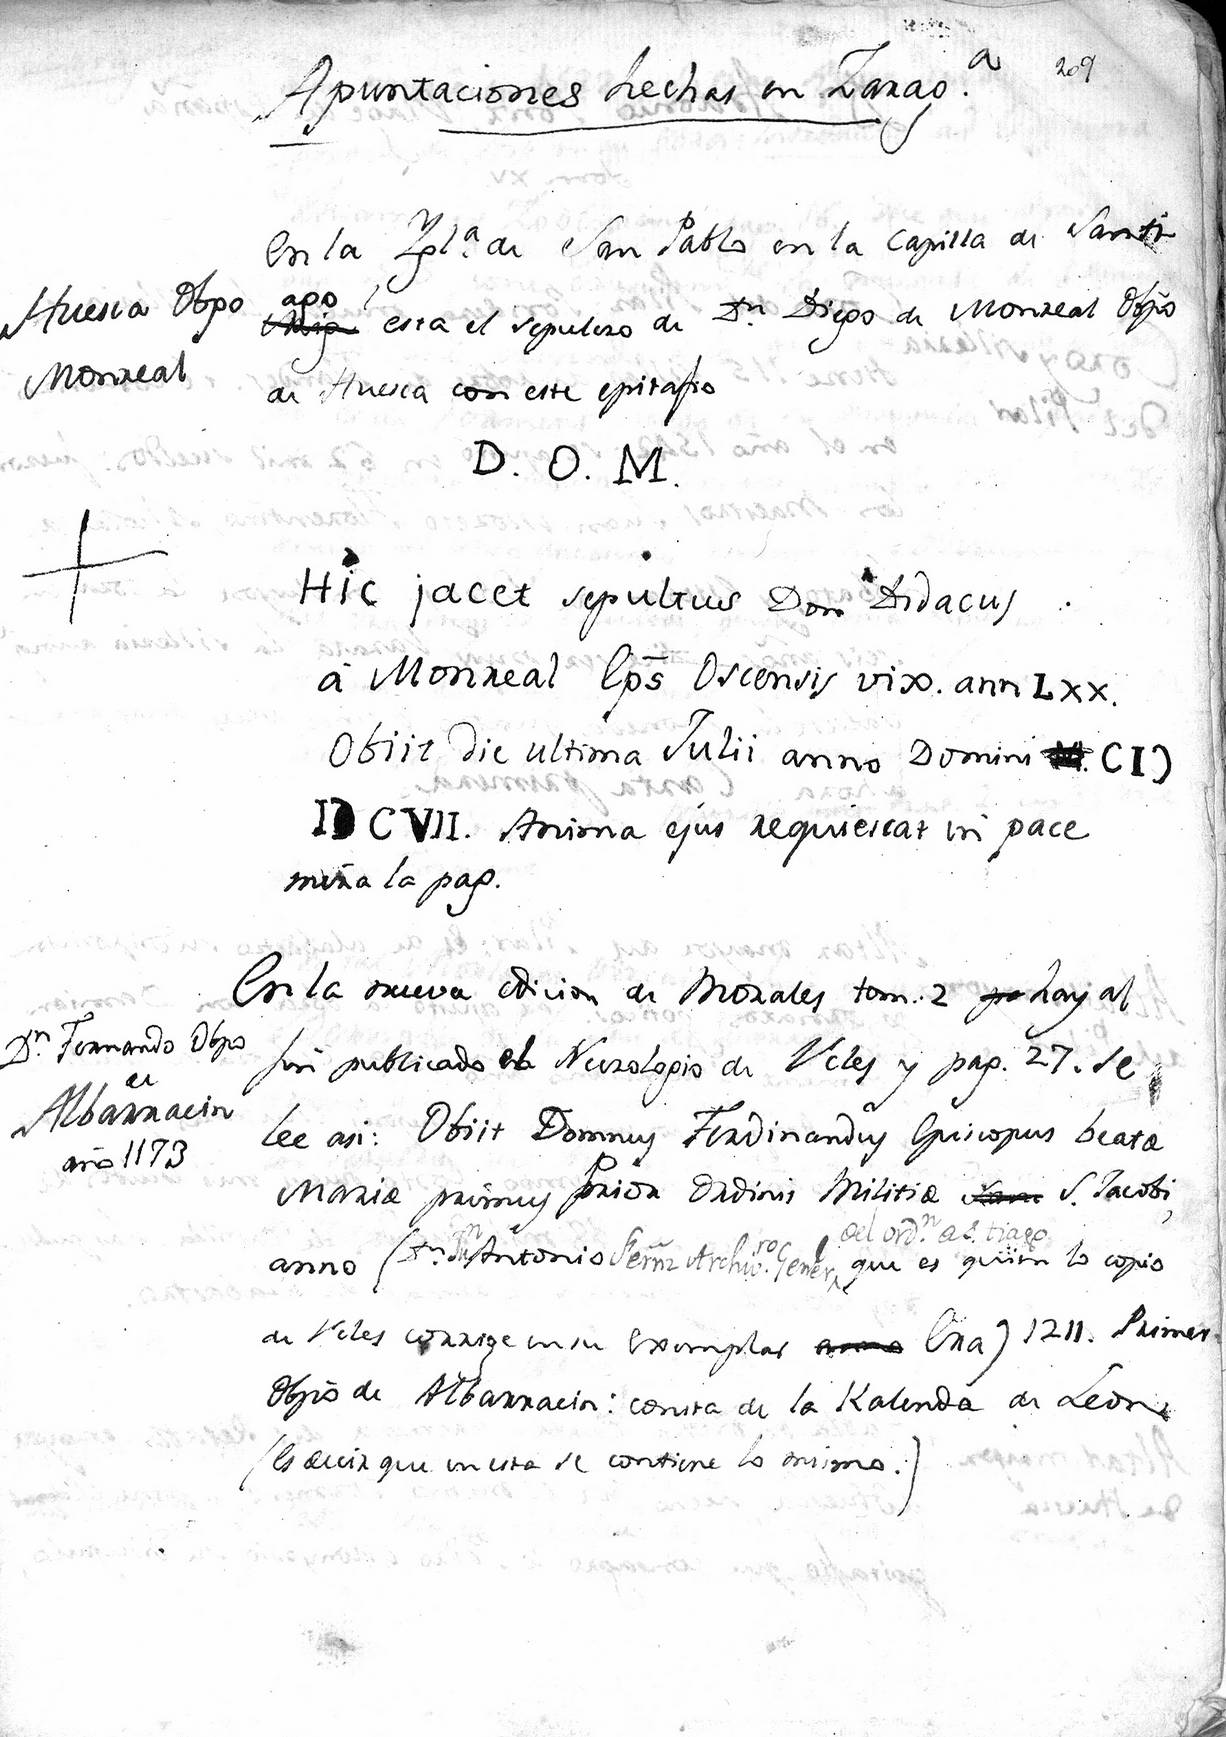 209
Apuntaciones hechas en Zarag.ª
En la Ygl.ª de San Pablo en la Capilla de Santi
ago
esta el sepulcro de Dn. Diego de Monreal Obpo
de Huesca con este epitafio
Huesca Obpo
Monreal
D. O. M.
Hic jacet sepultus Don Didacus
á Monreal Eps̄ Oscensis vix. ann LXX.
Obiit die ultima Julii anno Domini CIƆ
IƆCVII. Anima ejus requiescat in pace
mira la pag.
En la nueva edicion de Morales tom. 2 hay al
fin publicado el Necrologio de Vcles y pag. 27. se
lee asi: Obiit Domnus Ferdinandus Episcopus beatæ
Mariæ primus Prior Ordinis Militiæ S. Jacobi,
del ord.n de S.tiago
anno (Dn. Jn Antonio Fern̄z Archiv.ro Gener.l que es quien lo copio
de Vcles corrige en su exemplar Era) 1211. Primer
Obpo de Albarracin: consta de la Kalenda de Leon,
(es decir que en esta se contiene lo mismo.)
Dn. Fernando Obpo
de
Albarracin
año 1173